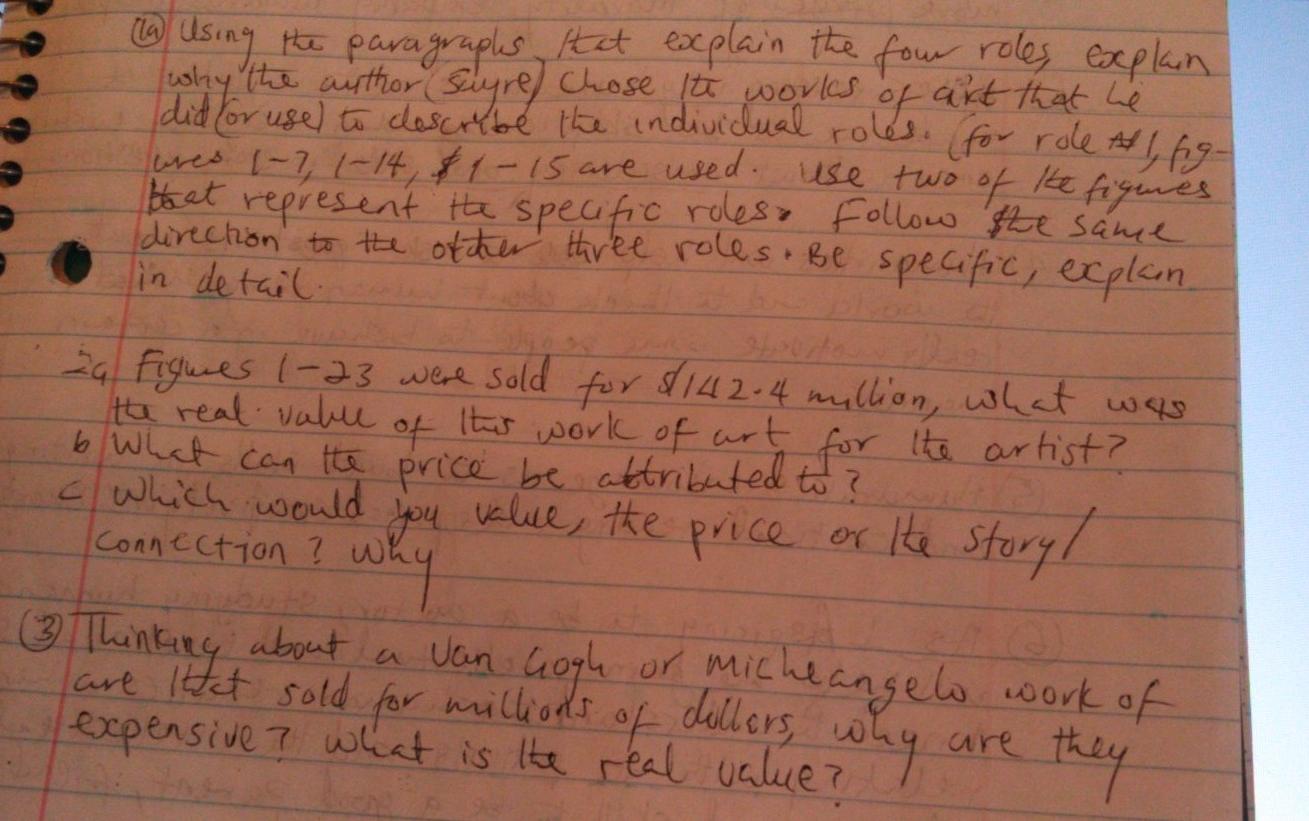 1a Using the paragraphs that explain the four roles, explain
why the author (Sayre) chose the works of art that he
did (or use) to describe the individual roles. (for role #1, fig-
ures 1-7, 1-14, $ 1-15 are used. Use two of the figures
that represent the specific roles. Follow the same
direction to the other three roles. Be specific, explain
in detail.
2a Figures 1-23 were sold for $142.4 million, what was
the real value of this work of art for the artist?
b What can the price be attributed to?
c Which would you value, the price or the story/
connection? Why
3 Thinking about a Van Gogh or Micheangelo work of
are that sold for millions of dollars, why are they
expensive? What is the real value?